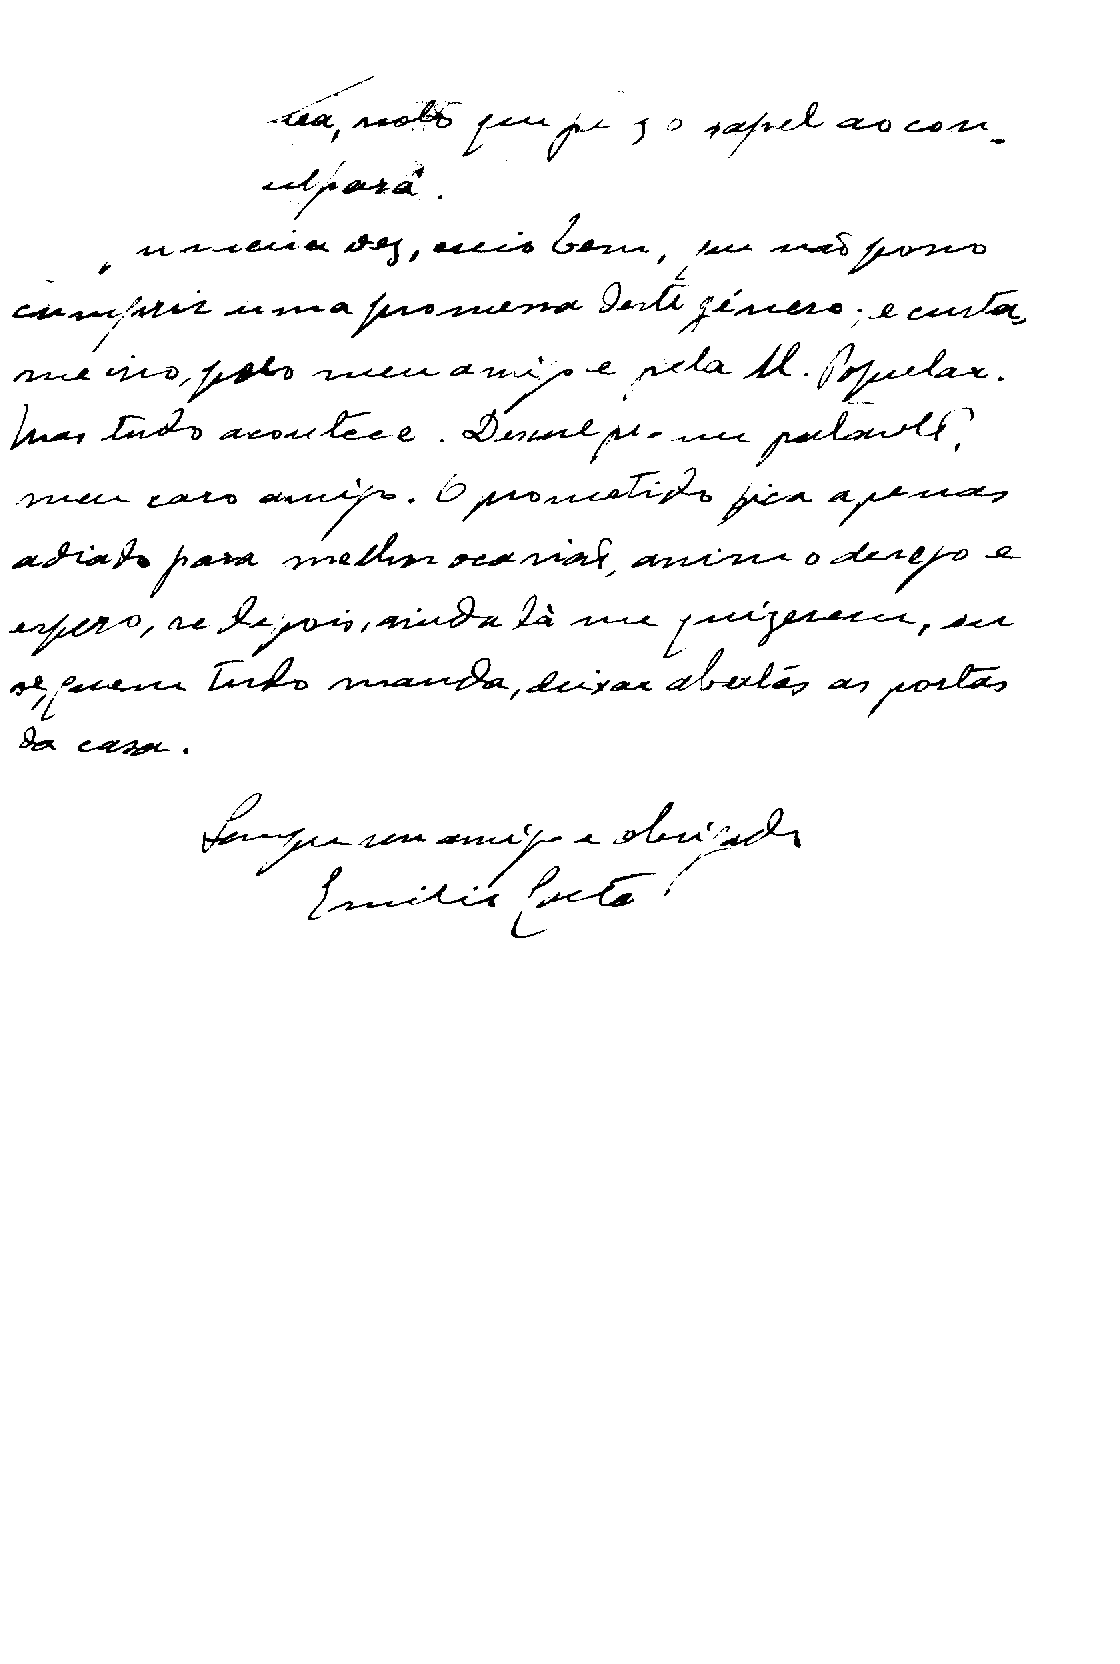 noto que o papel ao con-
culpará.
vez, creio bem, eu não posso
cumprir uma promessa dêste género; e custa-
me isso, pelo meu amigo e pela U. Popular.
Mas tudo acontece. Desculpe-me portanto,
meu caro amigo. O prometido fica apenas
adiado para melhor ocasião, assim o desejo e
espero, se depois, ainda lá me quizerem, ou
se, quem tudo manda, deixar abertas as portas
da casa.
Sempre seu amigo e obrigado
Emilio Costa